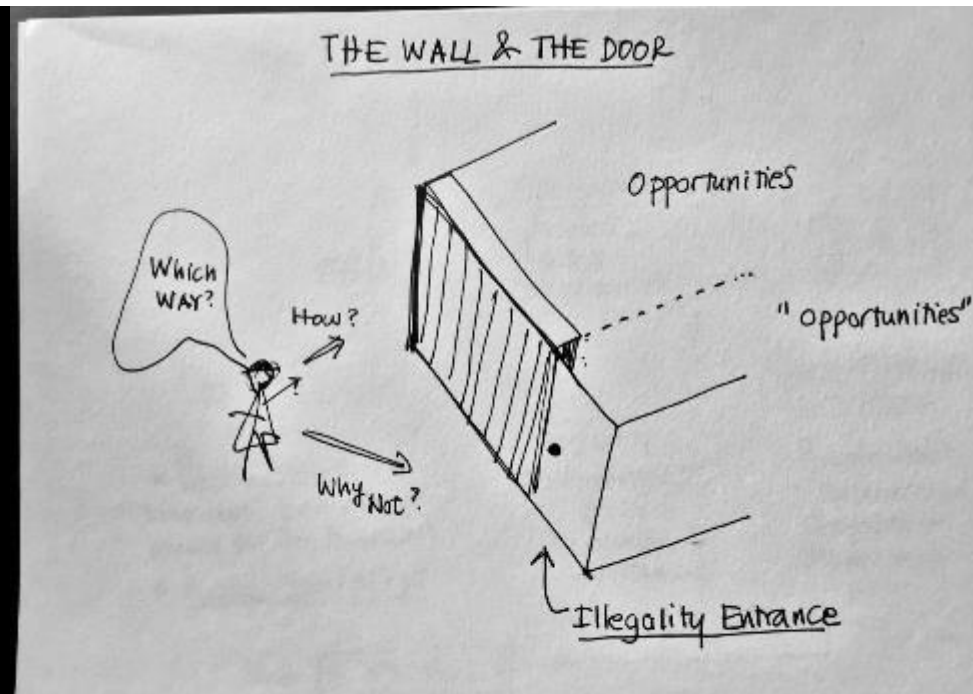 THE WALL & THE DOOR
Opportunities
Which
WAY?
How?
"Opportunities"
?
Why Not?
Illegality Entrance